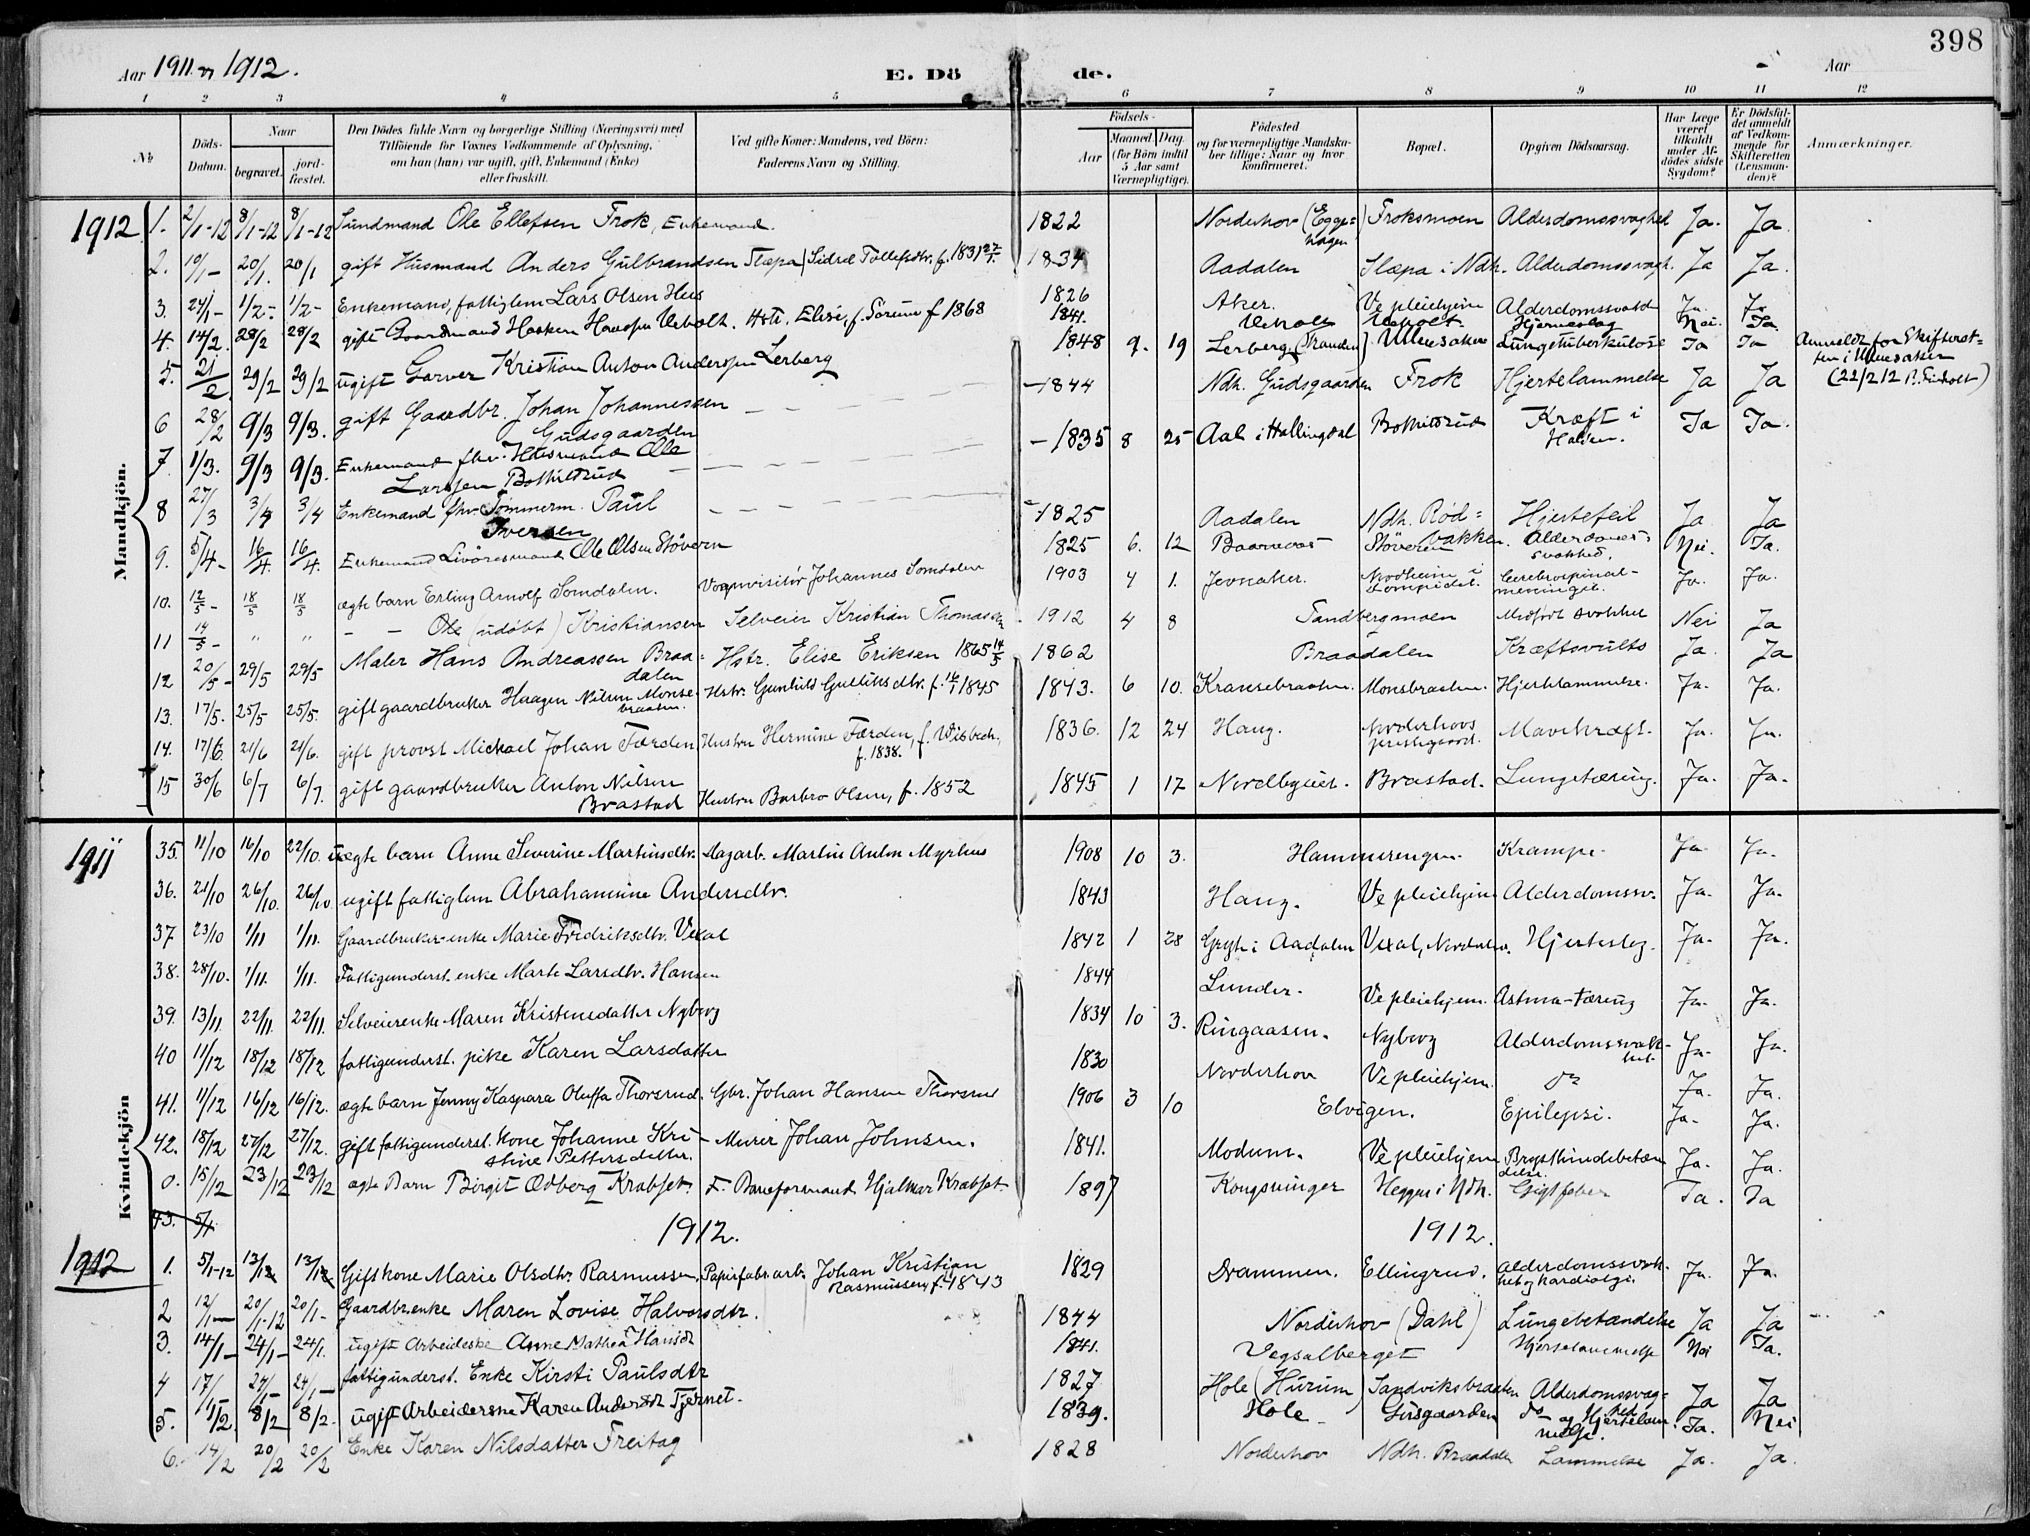 398
Aar 1911 og 1912.
E. Dö de.
Aar
1 2 3 4 5 6 7 8 9 10 11 12
№
Döds-Datum.
Naar
begravet.
jord-fæstet.
Den Dödes fulde Navn og borgerlige Stilling (Næringsvei) med
Tilföiende for Voxnes Vedkommende af Oplysning,
om han (hun) var ugift, gift, Enkemand (Enke)
eller fraskilt.
Ved gifte Koner: Mandens, ved Börn:
Faderens Navn og Stilling.
Födsels-
Aar
Maaned Dag.
(for Börn indtil
5 Aar samt
Værnepligtige).
Födested
og for værnepligtige Mandska-
ber tillige: Naar og hvor
konfirmeret.
Bopæl.
Opgiven Dödsaarsag.
Har Læge
været
tilkaldt
under Af-
dödes sidste
Sygdom?
Er Dödsfal-
det anmeldt
af Vedkom-
mende for
Skifteretten
(Lensman-
den)?
Anmærkninger.
Mandkjön.
1912 1. 2/1-12 8/1-12 8/1-12 Sundmand Ole Ellefsen Frok, Enkemand. 1822 Norderhov (Egge=hagen) Froksmoen Alderdomssvaghed Ja. Ja
2. 10/1- 20/1. 20/1 gift Husmand Anders Gulbrandsen Slæpa Sidsel Tollefsdtr. f. 1831 27/1. 1834 Aadalen Slæpa i Ndh. Alderdomssvagh. Ja Ja.
3. 24/1- 1/2- 1/2- Enkemand, fattiglem Lars Olsen Hus 1826 Aker. Ve pleiehjem Alderdomssvakh Ja. Ja
4. 14/2. 28/2 28/2 gift Gaardmand Haaken Veholt. Hstr. Elise, f. Sørum f 1868 1841. Veholt Veholt. Hjerneslag Nei. Ja.
5. 21/2 29/2 29/2 ugift Garver Kristian Anton Anderssen Lerberg 1848 9. 19 Lerberg (Stranden) Ullensaker Lungetuberkulose Ja Ja Anmeldt for Skifteret=ten i Ullensaker (22/2 12
6 28/2 9/3 9/3. gift Gaardbr. Johan Johannessen Gudsgaarden 1844 Ndh. Gudsgaarden Frok Hjertelammelse Ja Ja
7. 1/3. 9/3 9/3. Enkemand fhv. Husmand Ole Larssen Bothildrud 1835 8 25 Aal i Hallingdal Bothildrud Kræft i Halsen. Ja Ja.
8 27/3 3/4 3/4 Enkemand fhv. Tømmerm. Paul Iversen 1825 Aadalen Ndh. Rød=bakken. Hjertefeil Ja Ja
9. 5/4- 16/4. 16/4. Enkemand Livøresmand Ole Olsen Støveren 1825 6. 12 Støveren Alderdoms=svakhed. Nei. Ja.
10. 12/5- 18/5 18/5 ægte barn Erling Arnolf Somdalen. Vognvisitør Johannes Somdalen 1903 4 1. Jevnaker. Modheim i Cerebrospinal-meningit. Ja. Ja.
11 14/5- " " - - Ole (udøbt) Kristiansen Selveier Kristian Thomassen 1912 4 8 Sandbergmoen Medfødt svakhet Nei Ja
12 20/5- 29/5 29/5 Maler Hans Andreassen Braadalen Hstr. Elise Eriksen 1865 14/5 1862 Braadalen Kræftsvulst Ja. Ja
13. 17/5. 25/5 25/5. gift gaardbruker Haagen Nilsen Monsebraaten. Hstr. Gunhild Gulliksdtr. f. 14/1 1845 1843. 6 10. Kransebraaten. Monsbraaten. Hjertelammelse. Ja. Ja.
14. 17/6. 21/6 21/6. gift provst Mickael Johan Færden Hustru Hermine Færden, f. Wisbech, f. 1838. 1836. 12 24 Haug. Norderhovs prestegaard. Mavekræft. Ja. Ja.
15 30/6 6/7 6/7. gift gaardbruker Anton Nilsen Brastad Hustru Barbro Olsen, f. 1852 1845 1 17 Nordbyeiet. Brastad. Lungetæring. Ja. Ja.
Kvindekjön
1911 35. 11/10 16/10 22/10. uægte barn Anne Severine Martinsdtr. Dagarb. Martin Anton Myrhus 1908 10 3. Hammerengen. Krampe. Ja Ja.
36. 21/10 26/10. 26/10. ugift fattiglem Abrahamine Andersdtr. 1843 Haug. Ve pleiehjem Alderdomssv. Ja. Ja.
37 23/10 1/11 1/11. Gaardbruker-enke Marie Fredriksdtr. Vexal 1842 1 28 Gryte i Aadalen Vexal, Norderhov. Hjerteslag. Ja. Ja.
38. 28/10. 1/11. 1/11. Fattigunderst. enke Marte Larsdtr. Hansen 1844 Lunder. Ve pleiehjem. Astma-tæring Ja. Ja.
39. 13/11. 22/11. 22/11. Selveierenke Maren Kristensdatter Nyberg 1834 10 3. Ringaasen. Nyberg Alderdomssvakhet Ja. Ja.
40 11/12 18/12 18/12 fattigunderst. pike Karen Larsdatter 1830 Norderhov Ve pleiehjem. do Ja. Ja.
41. 11/12 16/12 16/12. ægte barn Jenny Kaspara Oluffa Thorsrud. Gbr. Johan Hansen Thorsrud 1906 3 10 Elvigen. Epilepsi. Ja. Ja.
42. 18/12 27/12 27/12. gift fattigunderst. kone Johanne Kristine Pettersdatter. Murer Johan Johnsen. 1841. Modum. Ve pleiehjem Brysthindebetændelse. Ja. Ja.
0. 15/12 23/12 23/12 ægte Barn Birgit Ædberg Krabset. F. Baneformand Hjalmar Krabset 1897 Kongsvinger Heggen i Ndh. Gigtfeber Ja. Ja
43. 5/1.
1912. 1912.
1912 1. 5/1-12 13/1 13/1 Gift kone Marie Olsdtr. Rasmussen, Papirfabr. arb. Johan Kristian Rasmussen, f. 1843 1829 Drammen. Ellingrud. Alderdomssvakhet og Kardialgi. Ja. Ja.
2 12/1- 20/1-12 20/1- Gaardbr.enke Maren Lovise Halvorsdtr. 1844 Norderhov (Dahl) Lungebetændelse Ja Ja
3. 14/1- 24/1- 24/1. ugift Arbeideske Anne Mathea Hansdt 1841. Vegsalberget Hjertelammelse Nei Ja.
4 17/1- 24/1- 24/1- fattigunderst. Enke Kirsti Paulsdtr 1827 Hole (Hurum) Sandviksbraaten Alderdomssvaghed Ja Ja
5. 1/2. 8/2- 8/2- ugift Arbeiderske Karen Andersdt Tjernet. 1839. Hole - Gusgaarden do og Hjertelammelse. Ja. Nei
6. 14/2 20/2 20/2 Enke Karen Nilsdatter Freitag 1828 Norderhov Ndh. Braadalen Lammelse Ja. Ja.